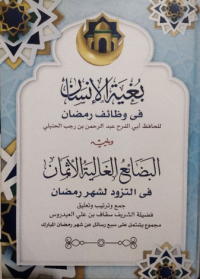 بغية الإنسان
في وظائف رمضان
للحافظ أبي الفرج عبد الرحمن بن رجب الحنبلي
ويليه
البضائع الغالية الأثمان
في التزود لشهر رمضان
جمع وترتيب وتعليق
فضيلة الشريف سقاف بن علي العيدروس
مجموع يشتمل على سبع رسائل عن شهر رمضان المبارك